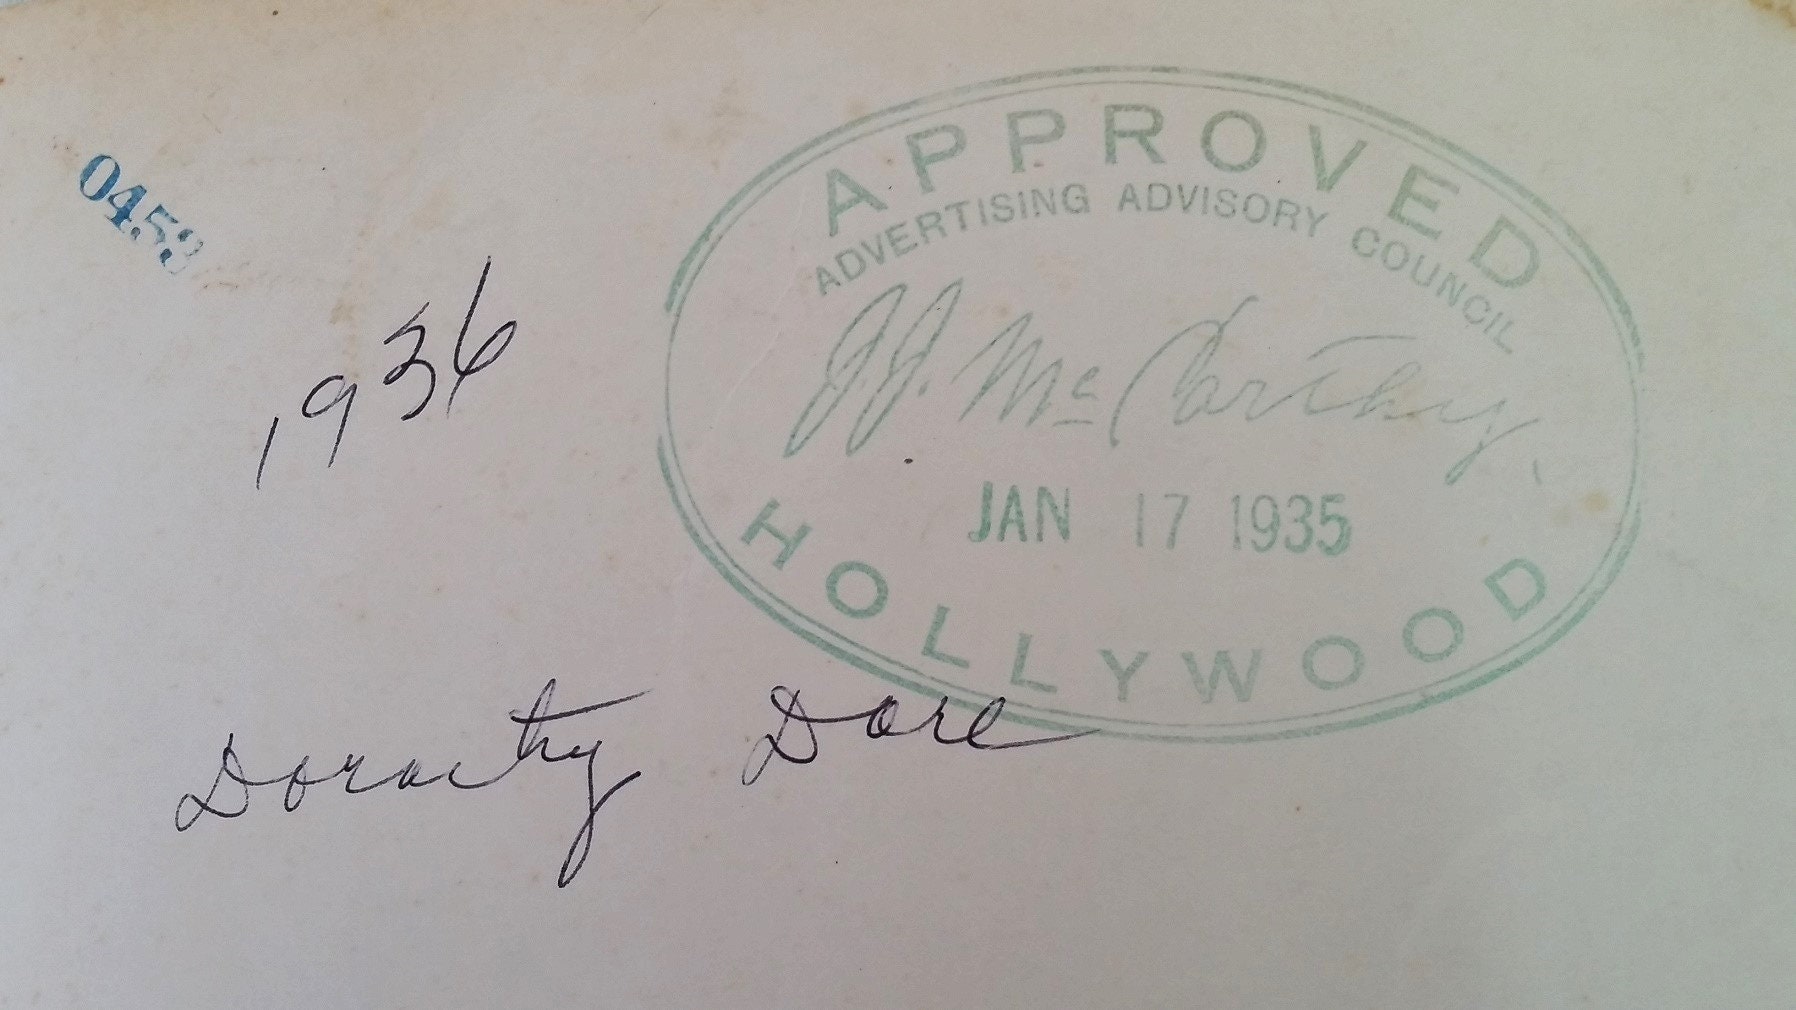 0453
1936
APPROVED
ADVERTISING ADVISORY COUNCIL
J.J. McCarthy
JAN 17 1935
HOLLYWOOD
Dorothy Dare